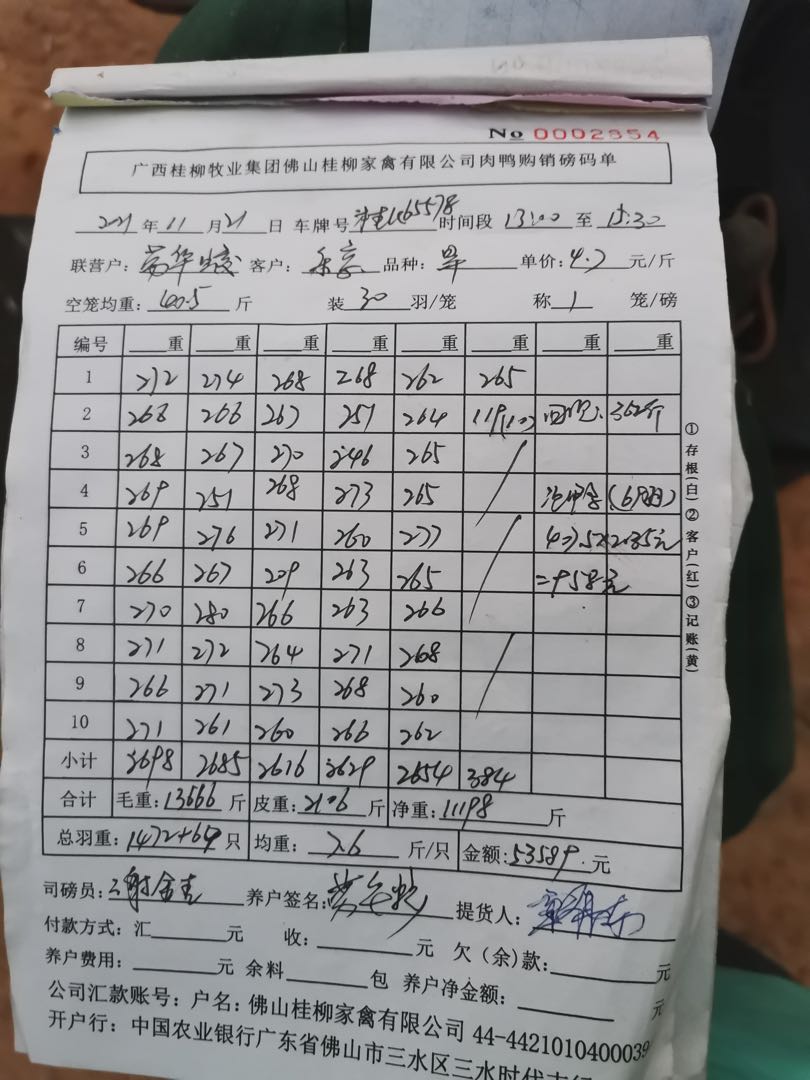 No 0002854
广西桂柳牧业集团佛山桂柳家禽有限公司肉鸭购销磅码单
2021年11月21日 车牌号 时间段 13:00 至 15:30
联营户: 客户: 品种: 单价:4.7 元/斤
空笼均重: 斤 装 30 羽/笼 称 1 笼/磅
编号 重 重 重 重 重 重 重 重
1 272 274 268 268 262 265
2 268 266 267 251 264 119(10) 362斤
3 268 267 270 246 265
4 269 251 268 273 265
5 269 276 271 260 277
6 266 267 209 263 265 =958元
7 270 280 266 263 266
8 271 272 264 271 268
9 266 271 273 268 260
10 271 261 260 266 262
小计 2698 2685 2616 2629 2654 384
合计 毛重:13666 斤 皮重:2106 斤 净重:11198 斤
总羽重:1472+69 只 均重: 7.6 斤/只 金额:53589. 元
司磅员: 养户签名: 提货人:
付款方式:汇 元 收: 元 欠(余)款: 元
养户费用: 元 余料 包 养户净金额: 元
公司汇款账号:户名:佛山桂柳家禽有限公司 44-4421010400039
开户行:中国农业银行广东省佛山市三水区三水时代支行
①存根(白)②客户(红)③记账(黄)